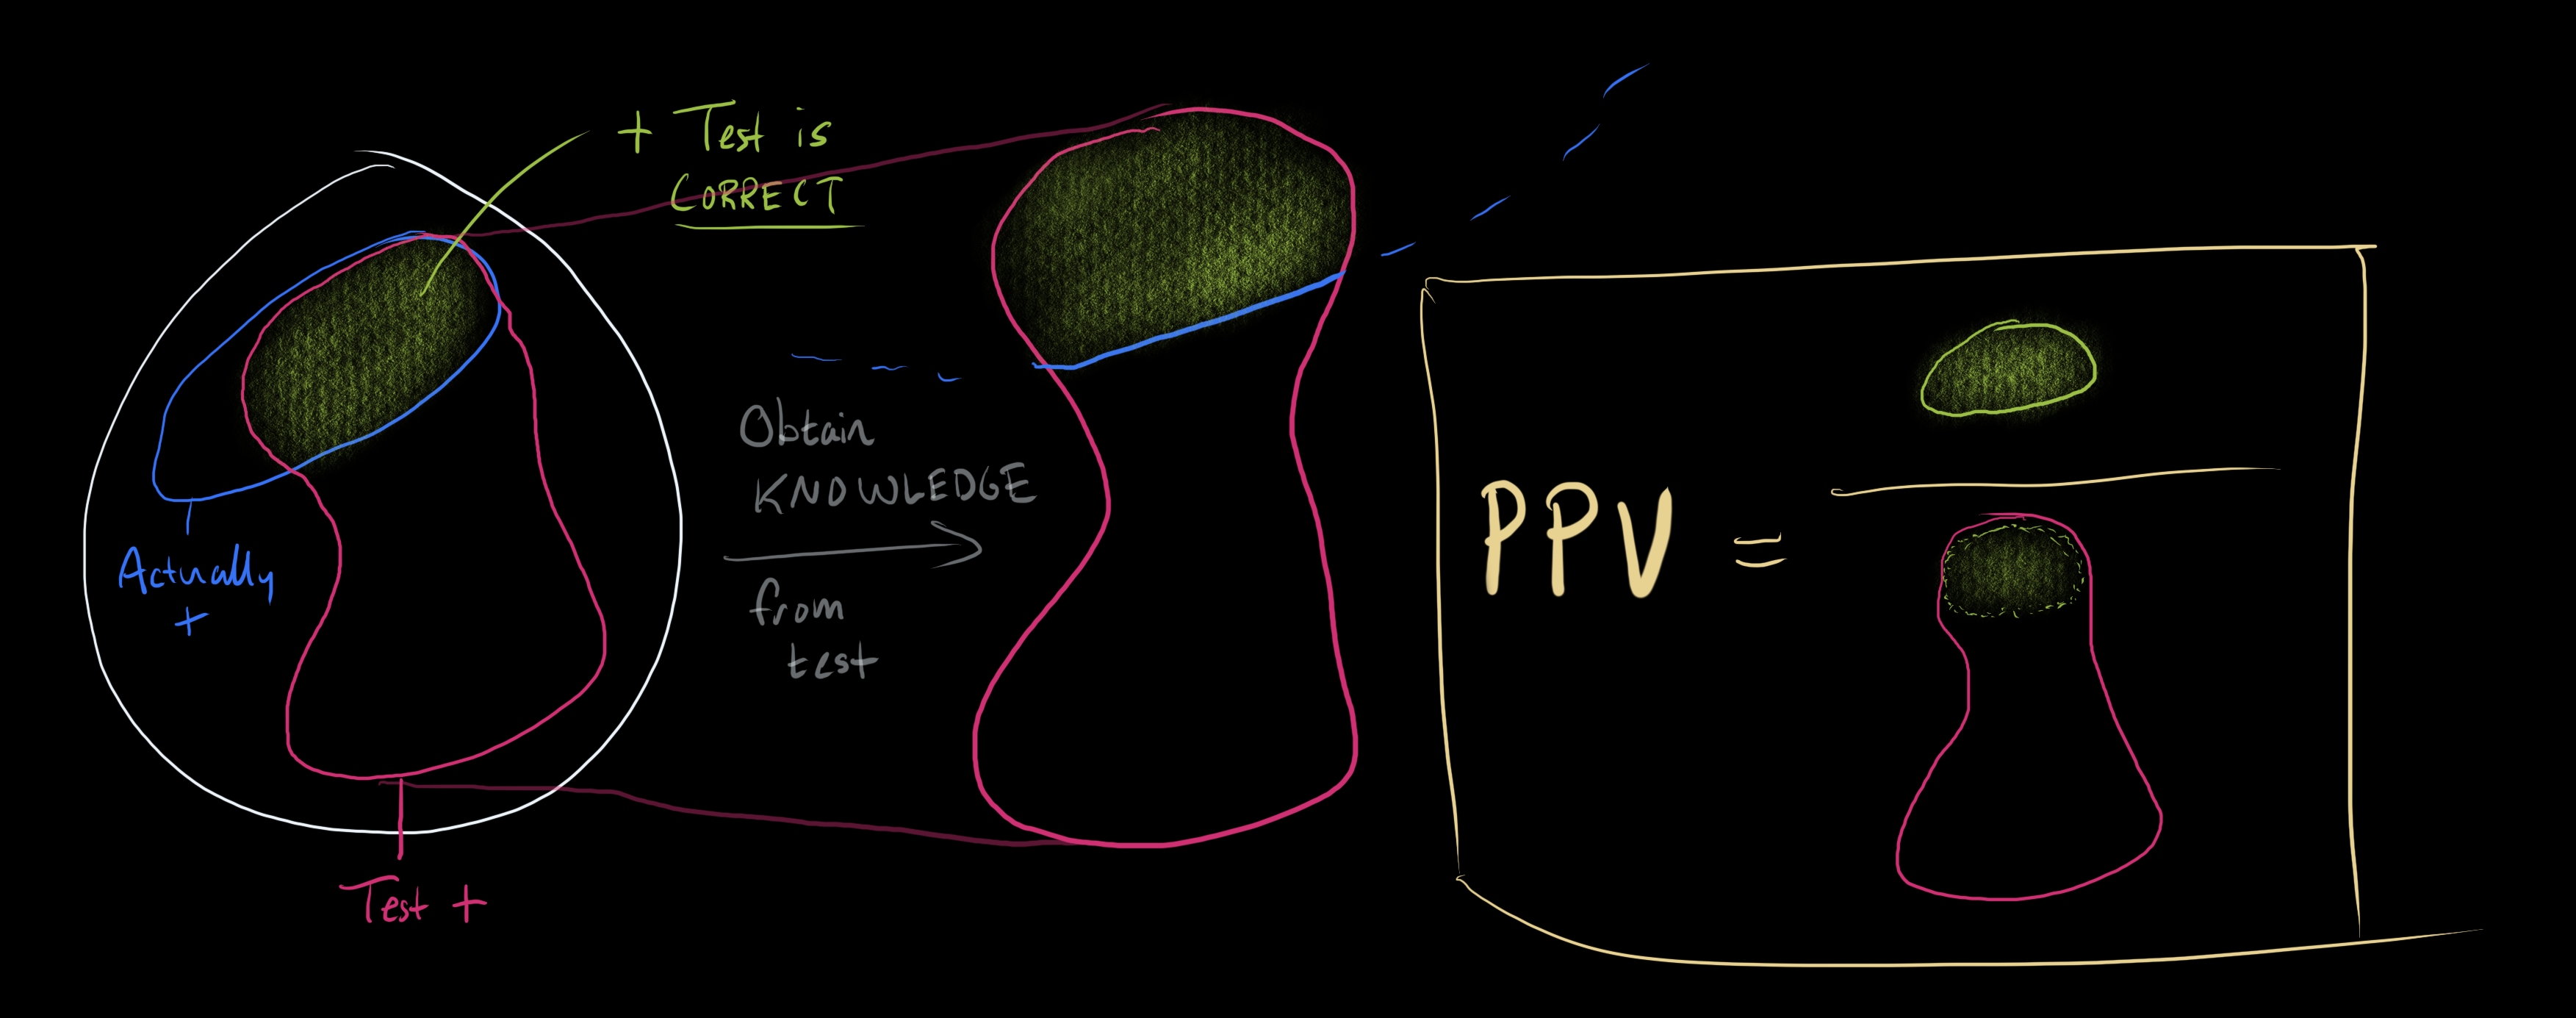 + Test is
CORRECT
Actually
+
Test +
Obtain
KNOWLEDGE
from
test
PPV =